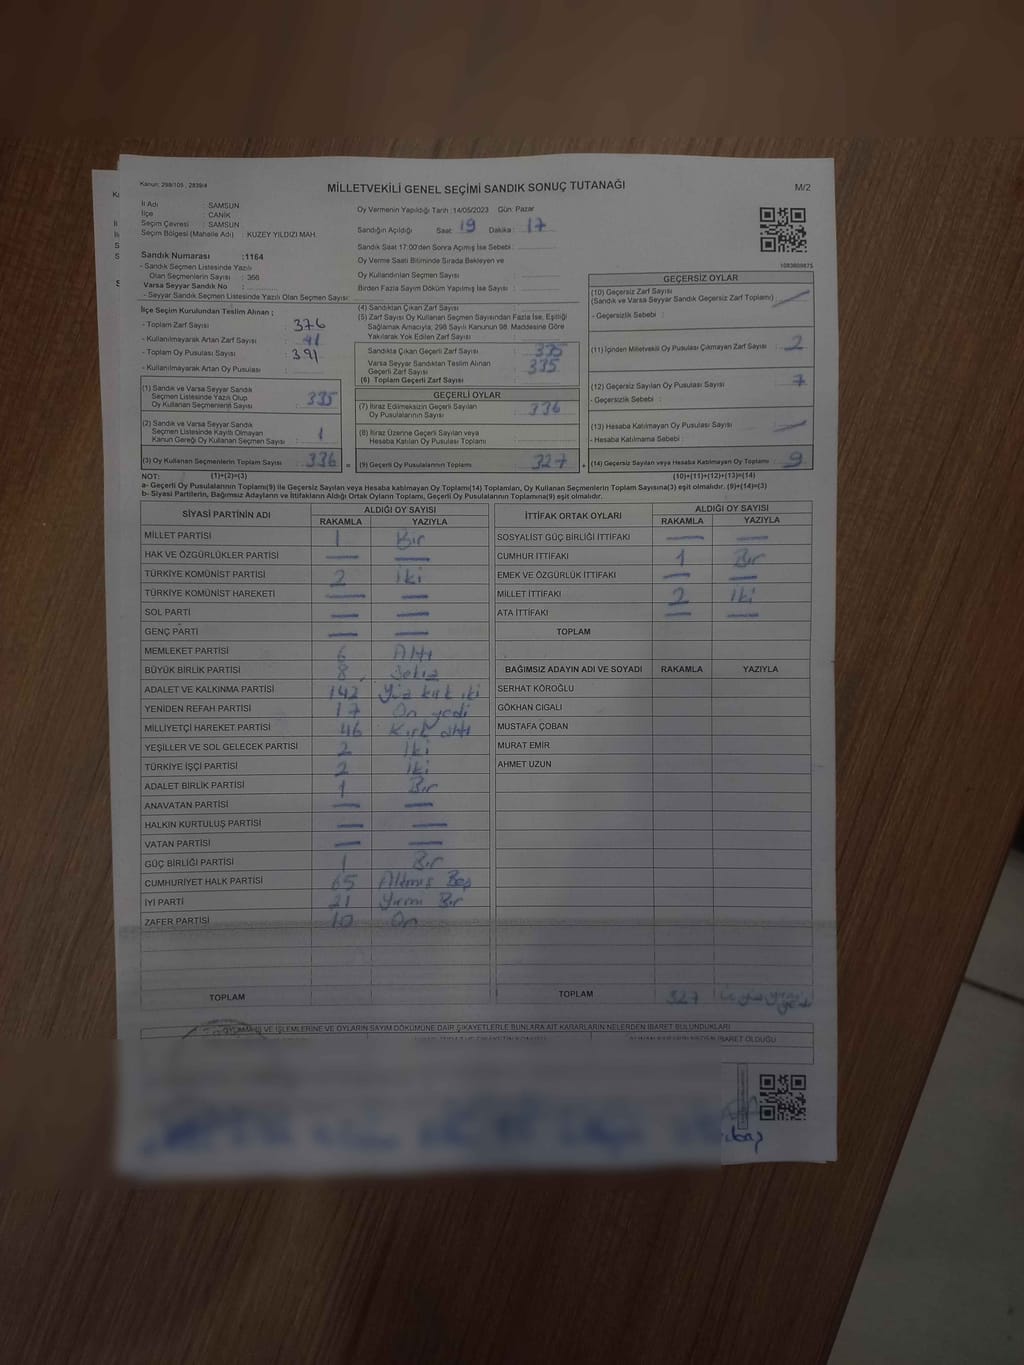 Kanun: 298/105 , 2839/4
MİLLETVEKİLİ GENEL SEÇİMİ SANDIK SONUÇ TUTANAĞI
M/2
İl Adı : SAMSUN
İlçe : CANİK
Seçim Çevresi : SAMSUN
Seçim Bölgesi (Mahalle Adı) : KUZEY YILDIZI MAH.
Oy Vermenin Yapıldığı Tarih :14/05/2023 Gün: Pazar
Sandığın Açıldığı Saat: 19 Dakika: 17
Sandık Saat 17:00'den Sonra Açılmış İse Sebebi :
Oy Verme Saati Bitiminde Sırada Bekleyen ve
Oy Kullandırılan Seçmen Sayısı :
Birden Fazla Sayım Döküm Yapılmış İse Sayısı :
1083809875
Sandık Numarası :1164
- Sandık Seçmen Listesinde Yazılı
Olan Seçmenlerin Sayısı : 356
Varsa Seyyar Sandık No :
- Seyyar Sandık Seçmen Listesinde Yazılı Olan Seçmen Sayısı:
İlçe Seçim Kurulundan Teslim Alınan ;
- Toplam Zarf Sayısı : 376
- Kullanılmayarak Artan Zarf Sayısı : 41
- Toplam Oy Pusulası Sayısı : 391
- Kullanılmayarak Artan Oy Pusulası :
(1) Sandık ve Varsa Seyyar Sandık
Seçmen Listesinde Yazılı Olup
Oy Kullanan Seçmenlerin Sayısı : 335
(2) Sandık ve Varsa Seyyar Sandık
Seçmen Listesinde Kayıtlı Olmayan
Kanun Gereği Oy Kullanan Seçmen Sayısı : 1
(3) Oy Kullanan Seçmenlerin Toplam Sayısı : 336
(4) Sandıktan Çıkan Zarf Sayısı :
(5) Zarf Sayısı Oy Kullanan Seçmen Sayısından Fazla İse, Eşitliği
Sağlamak Amacıyla; 298 Sayılı Kanunun 98. Maddesine Göre
Yakılarak Yok Edilen Zarf Sayısı :
Sandıkta Çıkan Geçerli Zarf Sayısı : 335
Varsa Seyyar Sandıktan Teslim Alınan
Geçerli Zarf Sayısı : 335
(6) Toplam Geçerli Zarf Sayısı :
GEÇERLİ OYLAR
(7) İtiraz Edilmeksizin Geçerli Sayılan
Oy Pusulalarının Sayısı : 336
(8) İtiraz Üzerine Geçerli Sayılan veya
Hesaba Katılan Oy Pusulası Toplamı :
= (9) Geçerli Oy Pusulalarının Toplamı : 327 +
GEÇERSİZ OYLAR
(10) Geçersiz Zarf Sayısı
(Sandık ve Varsa Seyyar Sandık Geçersiz Zarf Toplamı) :
- Geçersizlik Sebebi :
(11) İçinden Milletvekili Oy Pusulası Çıkmayan Zarf Sayısı : 2
(12) Geçersiz Sayılan Oy Pusulası Sayısı : 7
- Geçersizlik Sebebi :
(13) Hesaba Katılmayan Oy Pusulası Sayısı :
- Hesaba Katılmama Sebebi :
(14) Geçersiz Sayılan veya Hesaba Katılmayan Oy Toplamı : 9
NOT: (1)+(2)=(3) (10)+(11)+(12)+(13)=(14)
a- Geçerli Oy Pusulalarının Toplamı(9) ile Geçersiz Sayılan veya Hesaba Katılmayan Oy Toplamı(14) Toplamları, Oy Kullanan Seçmenlerin Toplam Sayısına(3) eşit olmalıdır. (9)+(14)=(3)
b- Siyasi Partilerin, Bağımsız Adayların ve İttifakların Aldığı Ortak Oyların Toplamı, Geçerli Oy Pusulalarının Toplamına(9) eşit olmalıdır.
SİYASİ PARTİNİN ADI ALDIĞI OY SAYISI
RAKAMLA YAZIYLA
MİLLET PARTİSİ 1 Bir
HAK VE ÖZGÜRLÜKLER PARTİSİ — —
TÜRKİYE KOMÜNİST PARTİSİ 2 İki
TÜRKİYE KOMÜNİST HAREKETİ — —
SOL PARTİ — —
GENÇ PARTİ — —
MEMLEKET PARTİSİ 6 Altı
BÜYÜK BİRLİK PARTİSİ 8 Sekiz
ADALET VE KALKINMA PARTİSİ 142 Yüz kırk iki
YENİDEN REFAH PARTİSİ 17 On yedi
MİLLİYETÇİ HAREKET PARTİSİ 46 Kırk altı
YEŞİLLER VE SOL GELECEK PARTİSİ 2 İki
TÜRKİYE İŞÇİ PARTİSİ 2 İki
ADALET BİRLİK PARTİSİ 1 Bir
ANAVATAN PARTİSİ — —
HALKIN KURTULUŞ PARTİSİ — —
VATAN PARTİSİ — —
GÜÇ BİRLİĞİ PARTİSİ 1 Bir
CUMHURİYET HALK PARTİSİ 65 Altmış Beş
İYİ PARTİ 21 Yirmi Bir
ZAFER PARTİSİ 10 On
TOPLAM
İTTİFAK ORTAK OYLARI ALDIĞI OY SAYISI
RAKAMLA YAZIYLA
SOSYALİST GÜÇ BİRLİĞİ İTTİFAKI — —
CUMHUR İTTİFAKI 1 Bir
EMEK VE ÖZGÜRLÜK İTTİFAKI — —
MİLLET İTTİFAKI 2 İki
ATA İTTİFAKI — —
TOPLAM
BAĞIMSIZ ADAYIN ADI VE SOYADI RAKAMLA YAZIYLA
SERHAT KÖROĞLU
GÖKHAN CIGALI
MUSTAFA ÇOBAN
MURAT EMİR
AHMET UZUN
TOPLAM 327 üç yüz yirmi yedi
OYLAMA İŞ VE İŞLEMLERİNE VE OYLARIN SAYIM DÖKÜMÜNE DAİR ŞİKAYETLERLE BUNLARA AİT KARARLARIN NELERDEN İBARET BULUNDUKLARI
ALINAN KARARIN NEDEN İBARET OLDUĞU